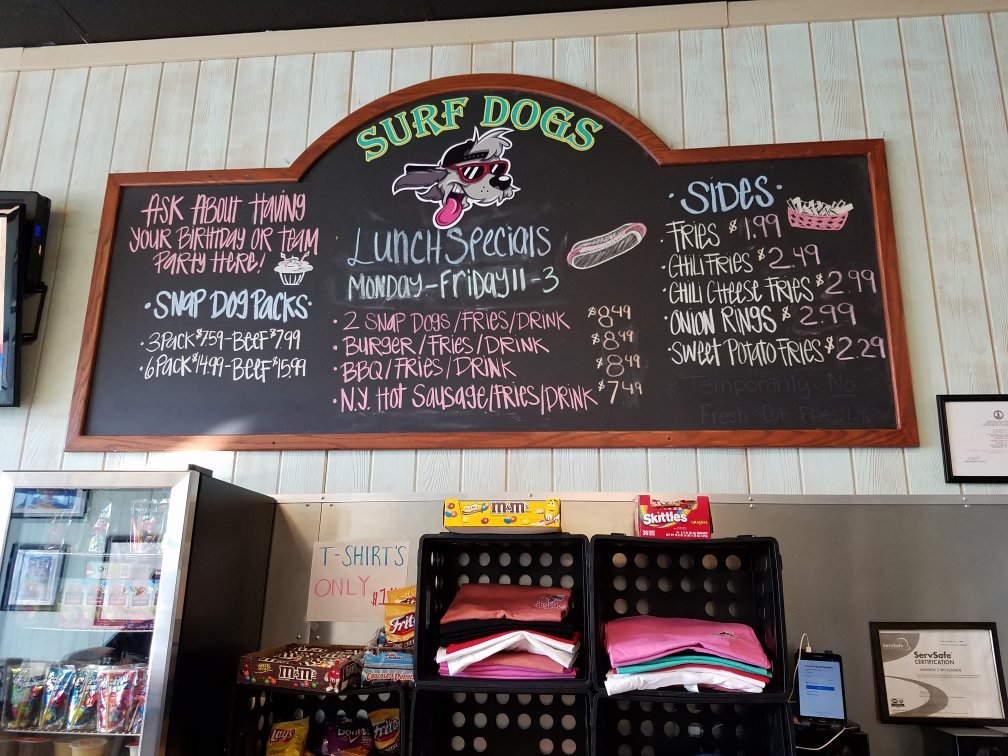 SURF DOGS
ASK ABOUT HAVING
YOUR BIRTHDAY OR TEAM
PARTY HERE!
·SNAP DOG PACKS·
·3 PACK $7.59-BEEF $7.99
·6 PACK $14.99-BEEF $15.99
LUNCH SPECIALS
MONDAY-FRIDAY 11-3
·2 SNAP DOGS/FRIES/DRINK $8.49
·BURGER/FRIES/DRINK $8.49
·BBQ/FRIES/DRINK $8.49
·N.Y. HOT SAUSAGE/FRIES/DRINK $7.49
·SIDES·
·FRIES $1.99
·CHILI FRIES $2.49
·CHILI CHEESE FRIES $2.99
·ONION RINGS $2.99
·SWEET POTATO FRIES $2.29
Temporarily No
Fresh Cut Fries
m&m's
Skittles
ORIGINAL
T-SHIRT'S
ONLY
Frit
m&m's
Lay's
Doritos
Fritos
ServSafe
CERTIFICATION